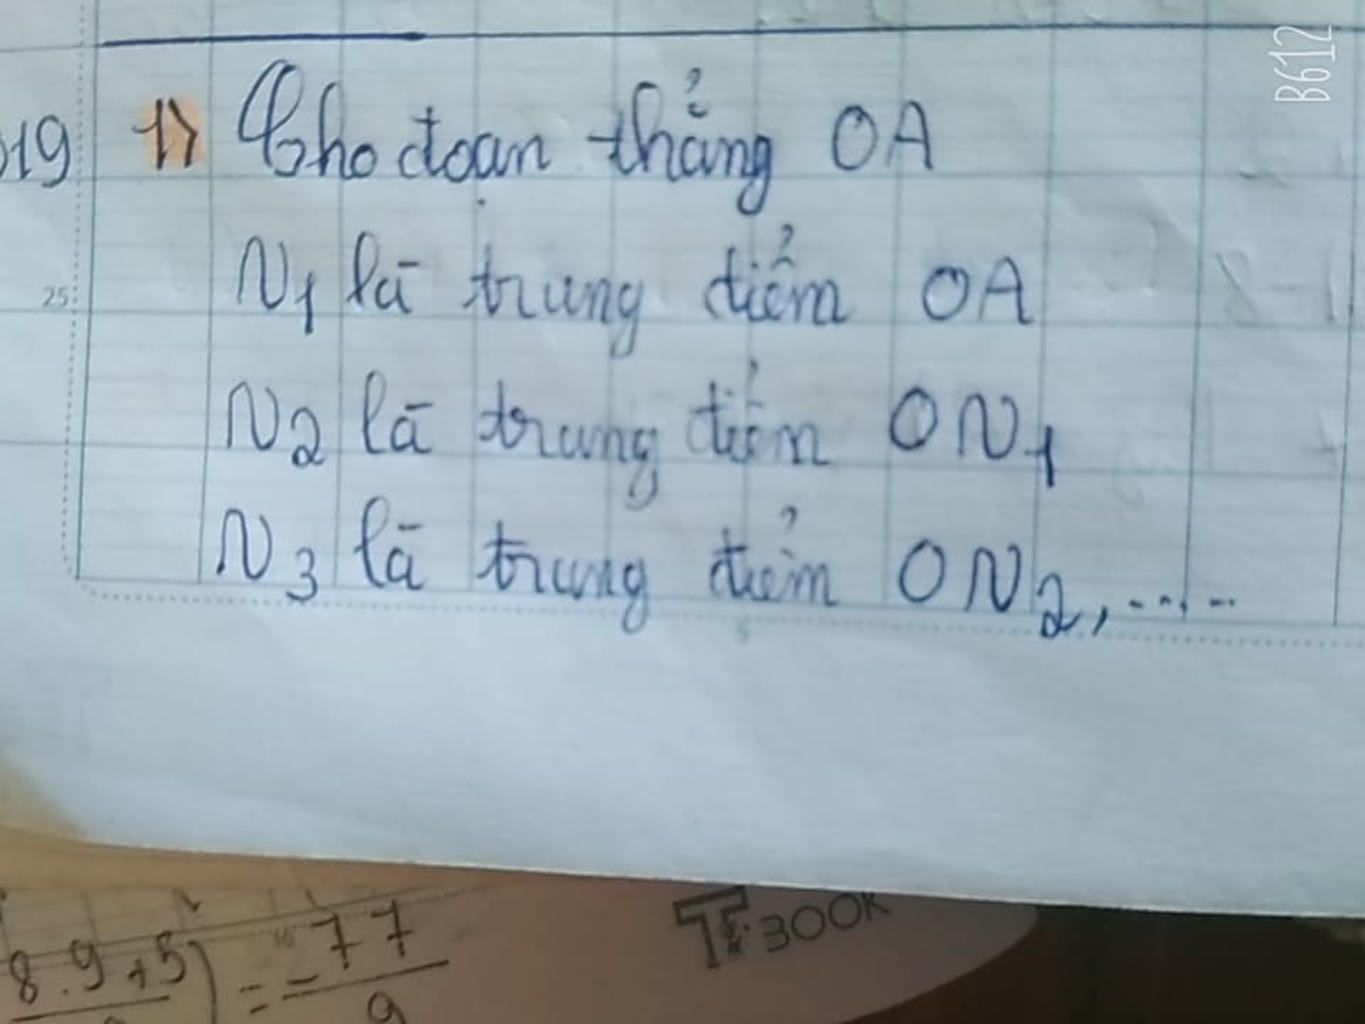 B612
19 1> Cho đoạn thẳng OA
N1 là trung điểm OA
25
N2 là trung điểm ON1
N3 là trung điểm ON2, .....
8.9+5) = -77
9
BOOK